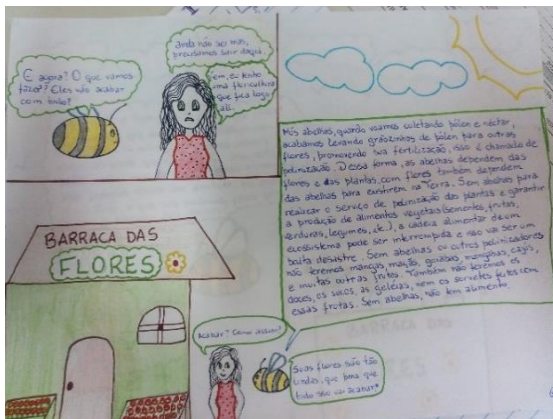 E agora? O que vamos
fazer? Eles vão acabar
com tudo!
Ainda não sei mas,
precisamos sair daqui.
eu tenho
uma floricultura
que fica logo
ali.
Nós abelhas, quando vamos coletando pólen e néctar,
acabamos levando grãozinhos de pólen para outras
flores, promovendo sua fertilização, isso é chamado de
polinização. Dessa forma, as abelhas dependem das
flores e das plantas, com flores também dependem
das abelhas para existirem na Terra. Sem abelhas para
realizar o serviço de polinização das plantas e garantir
a produção de alimentos vegetais (sementes, frutas,
verduras, legumes, etc.), a cadeia alimentar de um
ecossistema pode ser interrompida e isso vai ser um
baita desastre. Sem abelhas ou outros polinizadores
não teremos mangas, maçãs, goiabas, mangabas, cajús,
e muitas outras frutas. Também não teremos os
doces, os sucos, as geléias, nem os sorvetes feitos com
essas frutas. Sem abelhas, não tem alimento.
BARRACA DAS
FLORES
Acabar? Como assim?
Suas flores são tão
lindas, que pena que
tudo isso vai acabar!